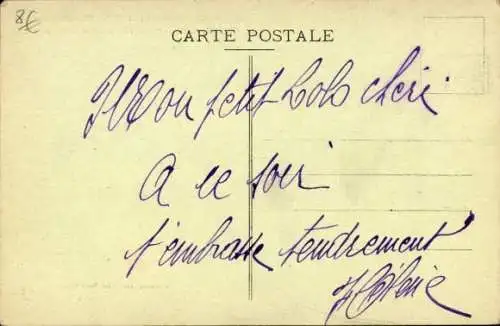 8€
CARTE POSTALE
Mon petit Lolo chéri
A ce soir
t'embrasse tendrement